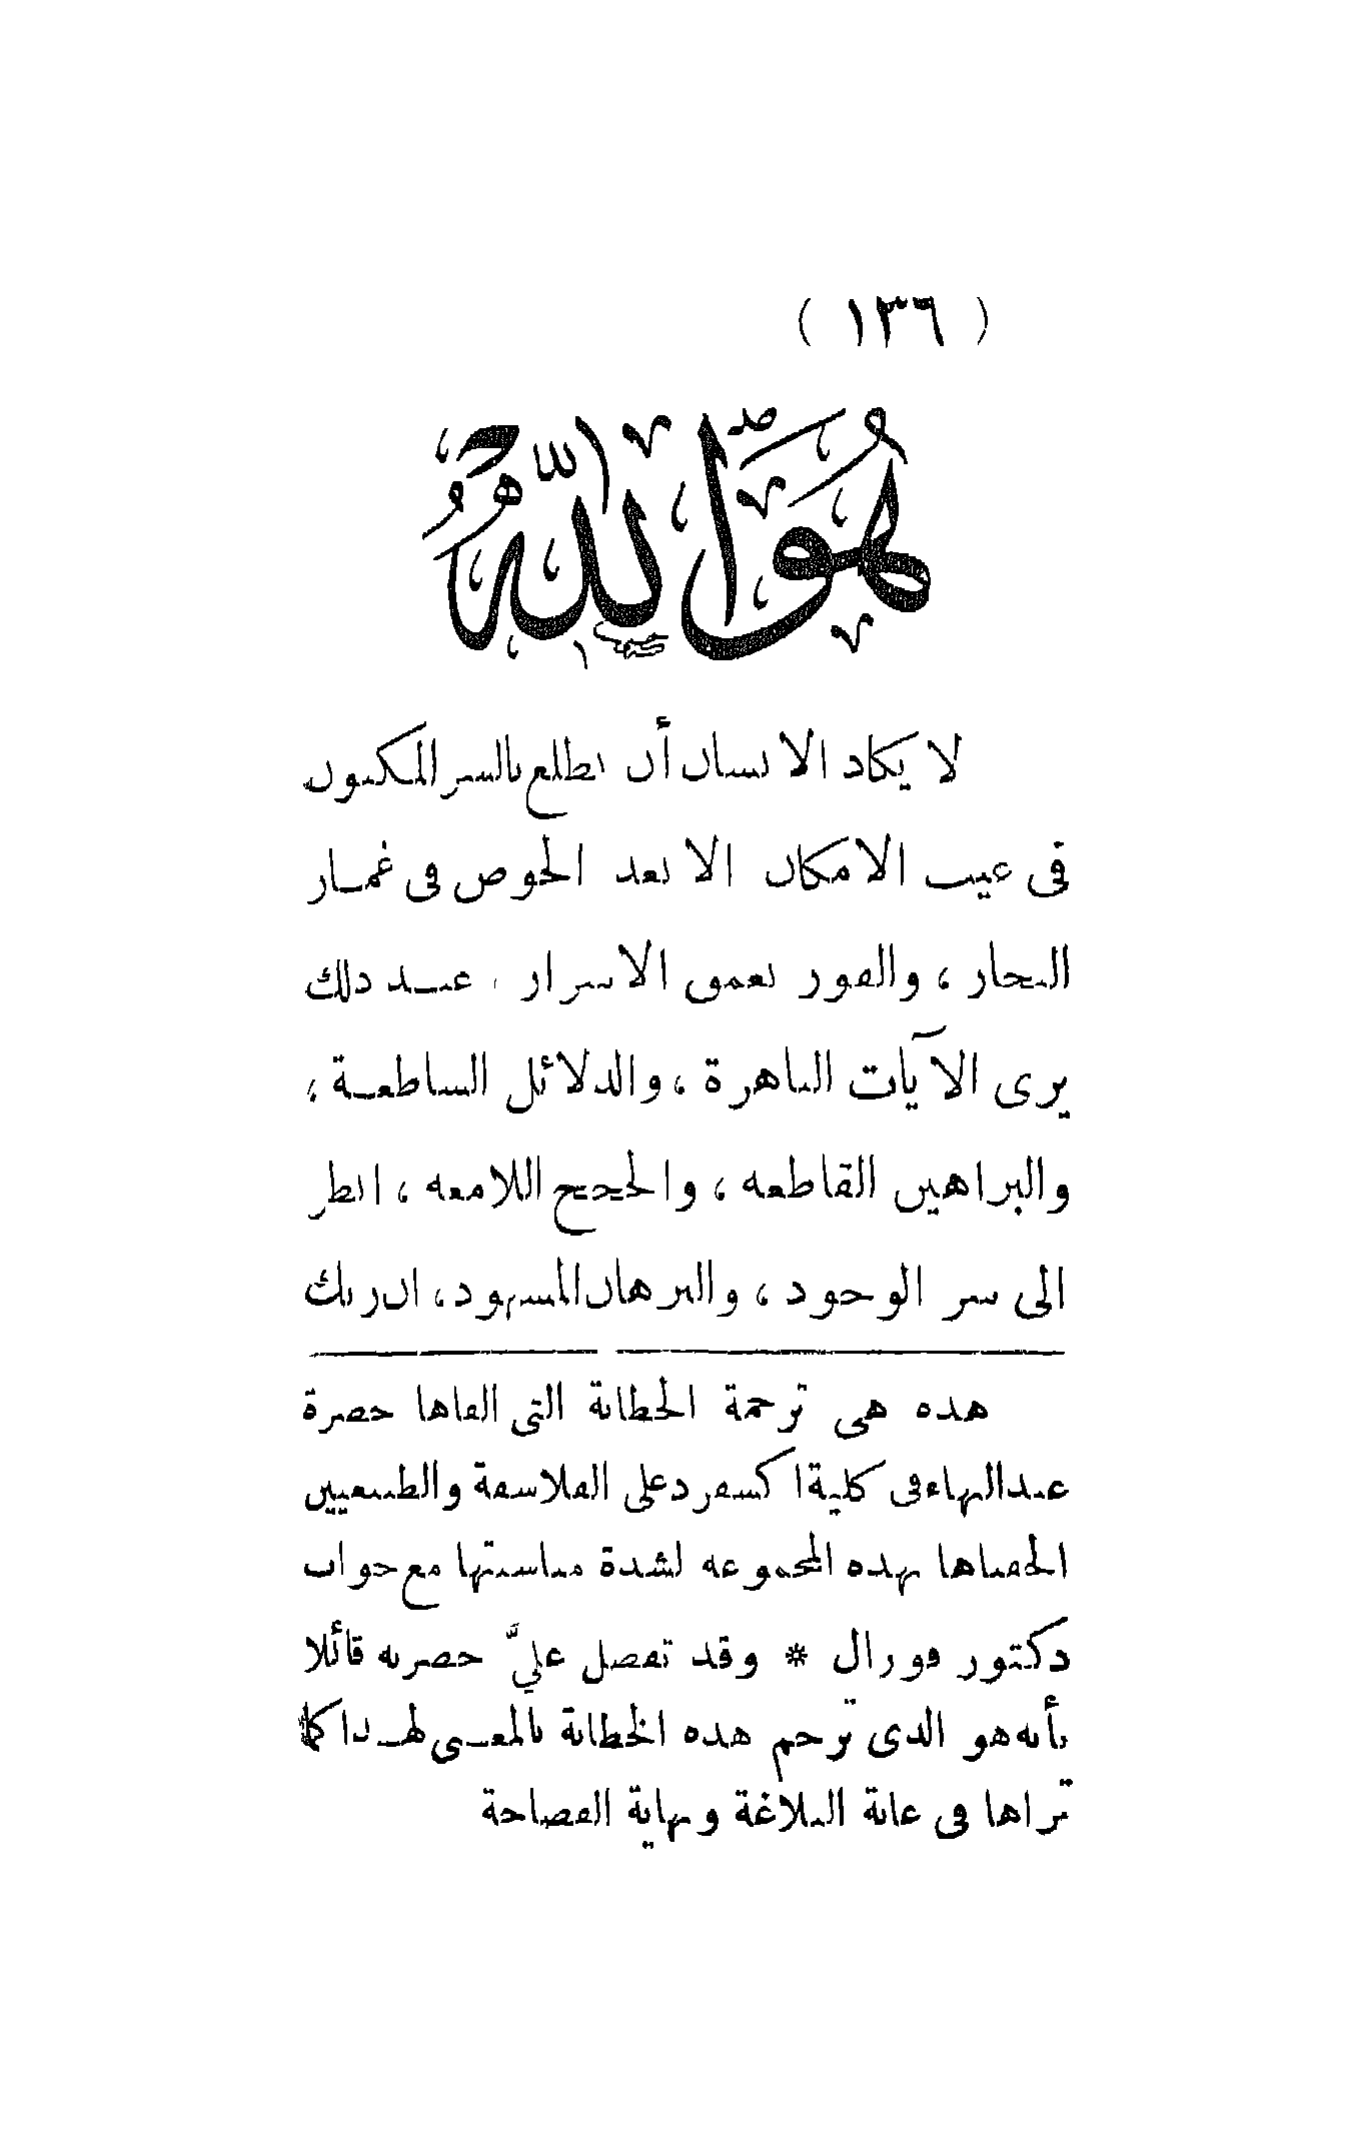 ( ١٣٦ )
هُوَ اللّٰهُ
لا يكاد الانسان أن يطلع بالسر المكنون
فى غيب الامكان الا بعد الخوض فى غمار
البحار ، والغور بعمق الاسرار ، عند ذلك
يرى الآيات الباهرة ، والدلائل الساطعة ،
والبراهين القاطعه ، والحجج اللامعه ، انظر
الى سر الوجود ، والبرهان المشهود ، ان ربك
هذه هى ترجمة الخطابة التى القاها حضرة
عبد البهاء فى كلية اكسفرد على الفلاسفة والطبيعيين
الحقناها بهذه المجموعه لشدة مناسبتها مع جواب
دكتور فورال * وقد تفضل عليَّ حضرته قائلا
بأنه هو الذى ترجم هذه الخطابة بالمعنى لهذا كما
تراها فى غاية البلاغة ونهاية الفصاحة